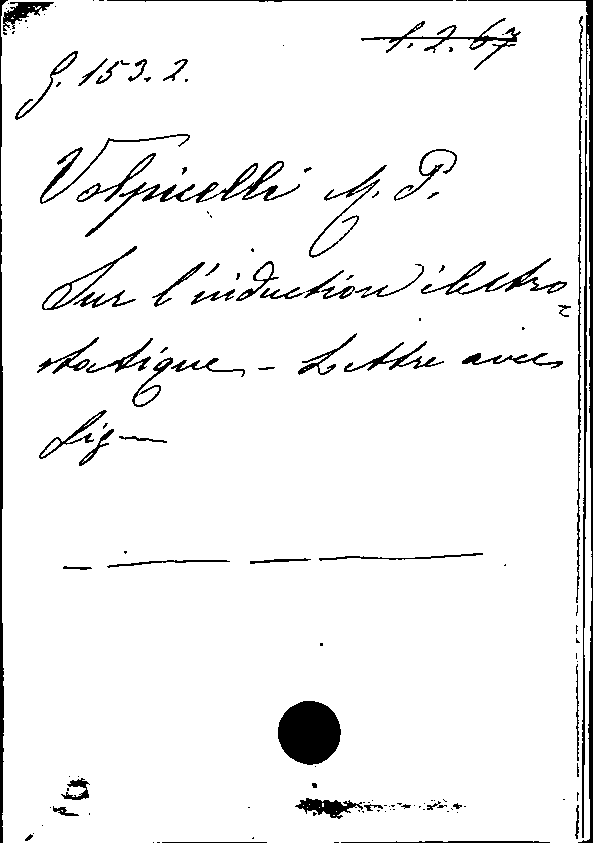 1.2.67
G. 153.2.
Volpicelli M. P.
Sur l'induction électro-
statique - Lettre avec
fig